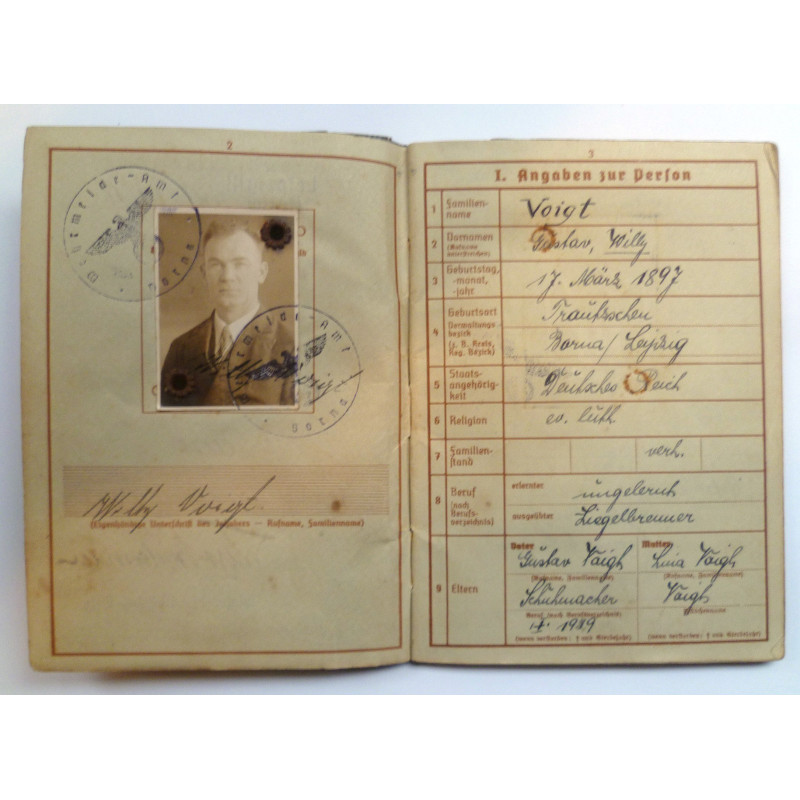 2
Wehrmelde-Amt
Borna
Wehrmelde-Amt
Borna
Willy Voigt
Willy Voigt.
(Eigenhändige Unterschrift des Inhabers — Rufname, Familienname)
3
I. Angaben zur Person
1 Familien-
name
Voigt
2 Vornamen
(Rufname
unterstreichen)
Gustav, Willy
3 Geburtstag,
-monat,
-jahr
17. März 1897
4 Geburtsort
Verwaltungs-
bezirk
(z. B. Kreis,
Reg. Bezirk)
Trautzschen
Borna/Leipzig
5 Staats-
angehörig-
keit
Deutsches Reich
6 Religion
ev. luth.
7 Familien-
stand
verh.
8 Beruf
(nach
Berufs-
verzeichnis)
erlernter
ungelernt
ausgeübter
Ziegelbrenner
9 Eltern
Vater
Mutter
Gustav Voigt
Lina Voigt
(Rufname, Familienname)
(Rufname, Familienname)
Schuhmacher
Voigt
Beruf (nach Berufsverzeichnis)
Mädchenname
1919
(wenn verstorben: † und Sterbejahr)
(wenn verstorben: † und Sterbejahr)